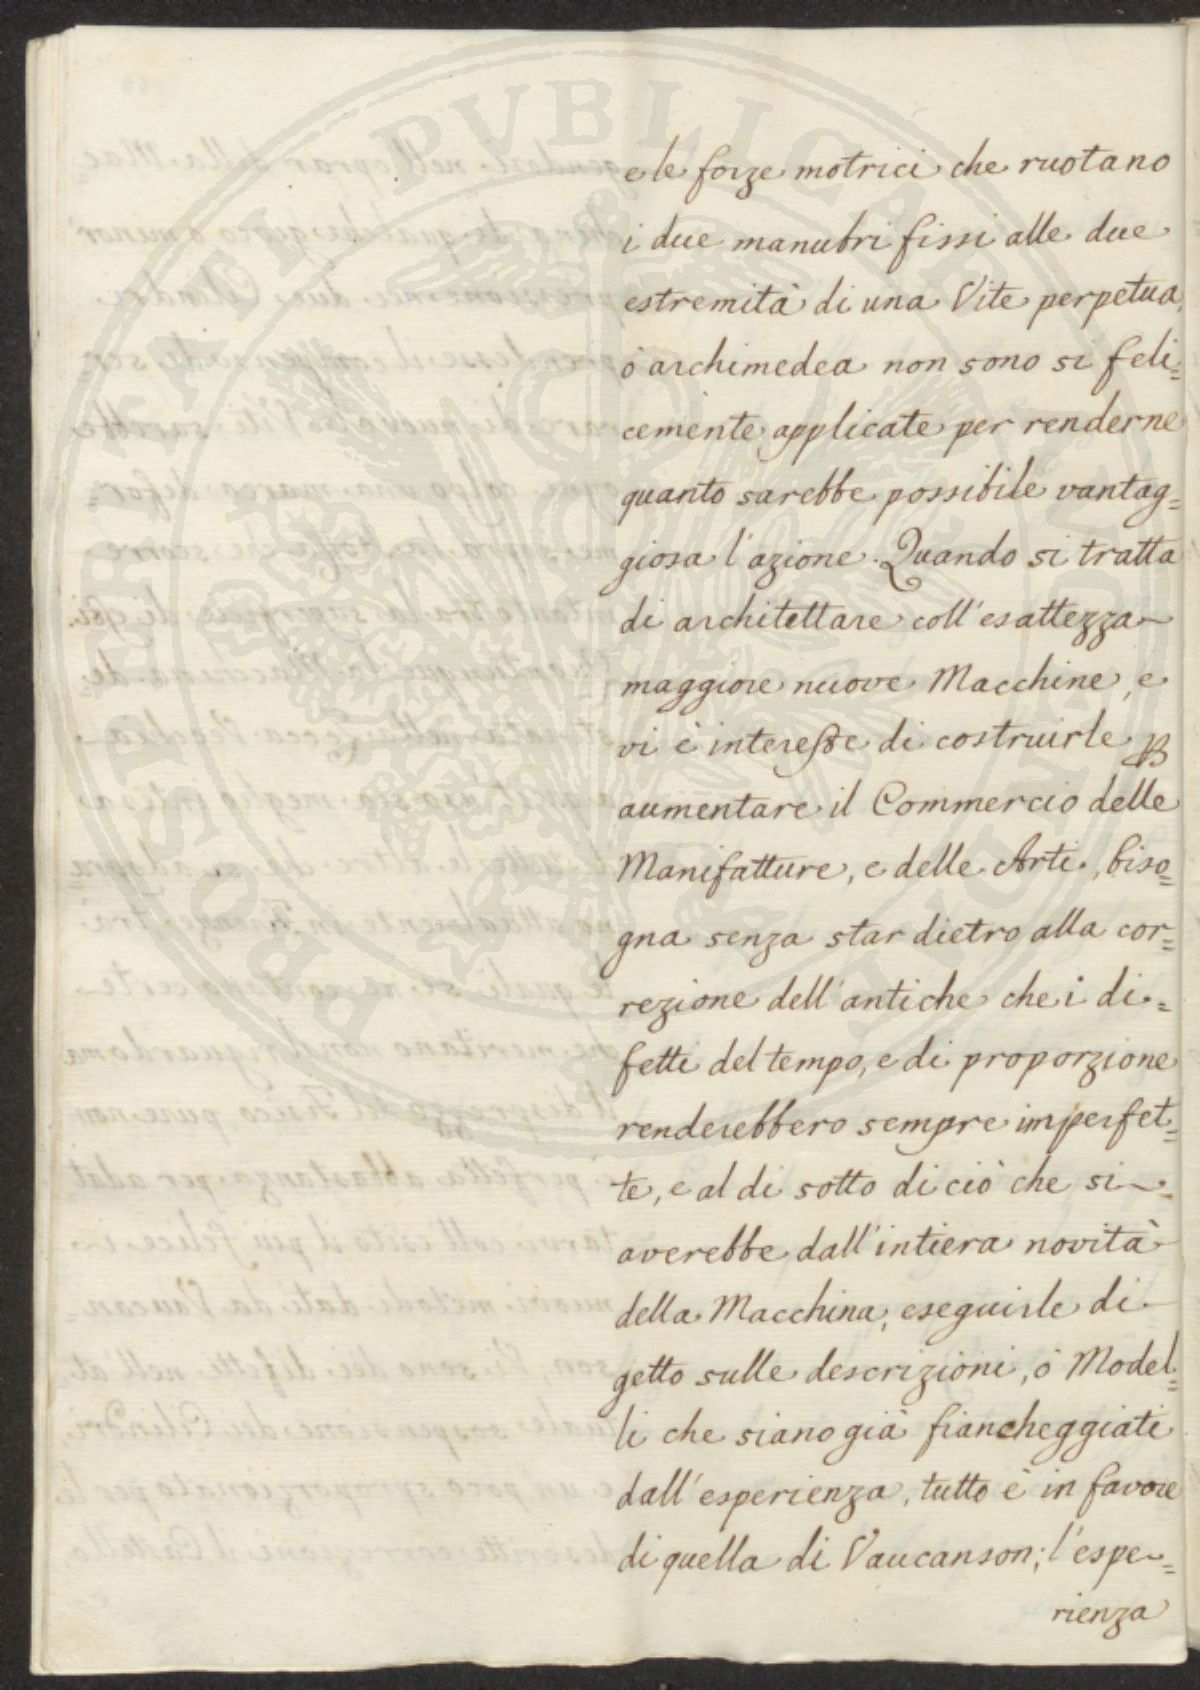 e le forze motrici che ruotano
i due manubri fissi alle due
estremità di una Vite perpetua,
ò archimedea non sono si feli=
cemente applicate per renderne
quanto sarebbe possibile vantag=
giosa l'azione. Quando si tratta
di architettare coll'esattezza
maggiore nuove Macchine, e
vi è interesse di costruirle p
aumentare il Commercio delle
Manifatture, e delle Arti, biso=
gna senza star dietro alla cor=
rezione dell'antiche che i di=
fetti del tempo, e di proporzione
renderebbero sempre imperfet=
te, e al di sotto di ciò che si
averebbe dall'intiera novità
della Macchina, eseguirle di
getto sulle descrizioni, ò Model=
li che siano già fiancheggiati
dall'esperienza, tutto è in favore
di quella di Vaucanson; l'espe=
rienza